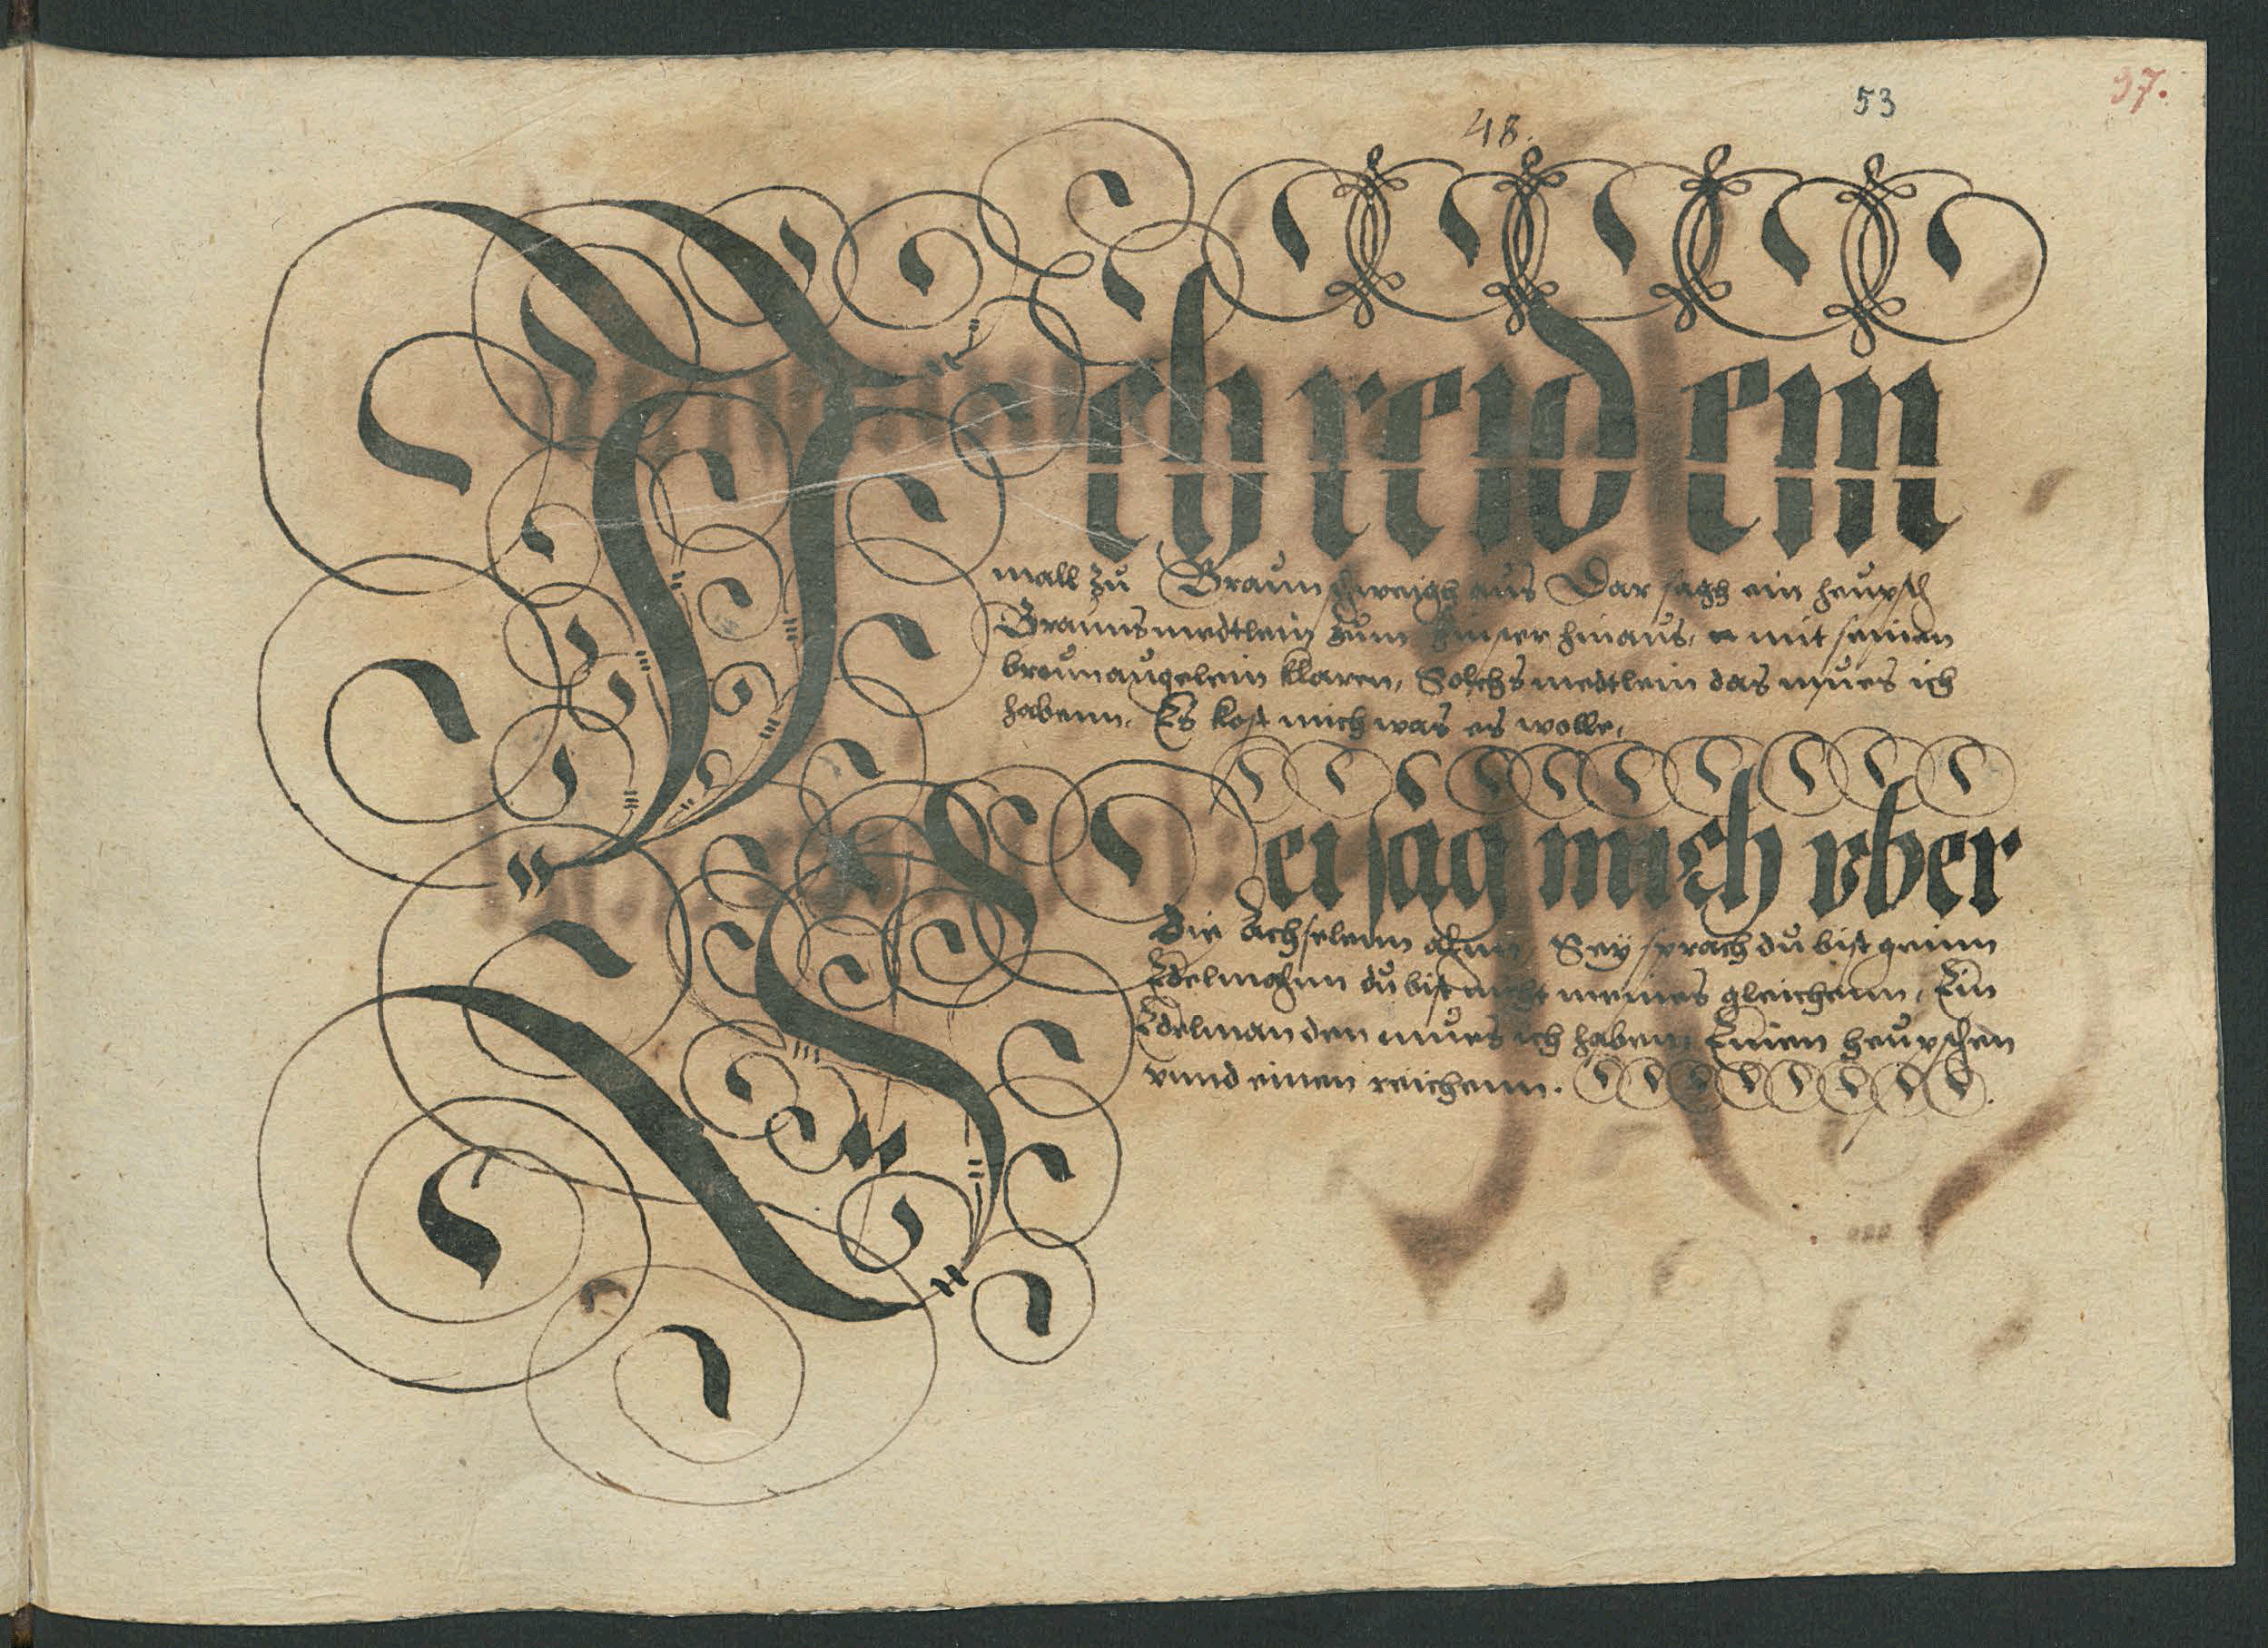 48.
53
97.
Ich reid ein
mall zu Braunschweigh aus Dar sagh ein heupsch
Brauns medtlein zum finster hinaus, mit seinen
breunaugelein klaren, Solchs medtlein das mues ich
habenn. Es kost mich was es wolle,
Sei sag mich vber
die Achselenn ahnn, Sey sprach du bist geinn
Edelmahnn du bist nicht meines gleichenn, Ein
Edelman den mues ich haben, Einen heupschen
vnnd einen reichenn.